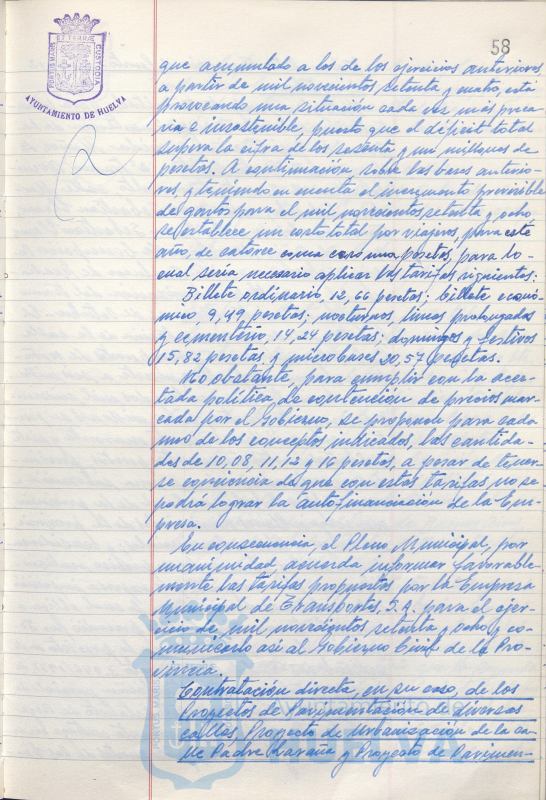 58
PORTUS MARIS ET TERRAE CUSTODIA
AYUNTAMIENTO DE HUELVA
que acumulado a los de los ejercicios anteriores
a partir de mil novecientos setenta y cuatro, está
provocando una situación cada vez más preca
ria e insostenible, puesto que el déficit total
supera la cifra de los sesenta y un millones de
pesetas. A continuación, sobre las bases anterio-
res y teniendo en cuenta el incremento previsible
de gastos para el mil novecientos setenta y ocho,
se establece un costo total por viajero, para este
año, de catorce coma pesetas, para lo
cual sería necesario aplicar las tarifas siguientes:
Billete ordinario, 12,66 pesetas; billete econó-
mico, 9,49 pesetas; nocturnos, líneas prolongadas
y cementerio, 14,24 pesetas; domingos y festivos
15,82 pesetas y microbuses 20,57 pesetas.
No obstante, para cumplir con la acer-
tada política de contención de precios mar-
cada por el Gobierno, se propone para cada
uno de los conceptos indicados, las cantida-
des de 10, 08, 11, 12 y 16 pesetas, a pesar de tener-
se conciencia de que con estas tarifas no se
podrá lograr la autofinanciación de la Em-
presa.
En consecuencia, el Pleno Municipal, por
unanimidad, acuerda informar favorable-
mente las tarifas propuestas por la Empresa
Municipal de Transportes, S.A. para el ejer-
cicio de mil novecientos setenta y ocho y co-
municarlo así al Gobierno Civil de la Pro-
vincia.
Contratación directa, en su caso, de los
Proyectos de Pavimentación de diversas
calles, Proyecto de Urbanización de la ca-
lle Padre Laraña y Proyecto de Pavimen-